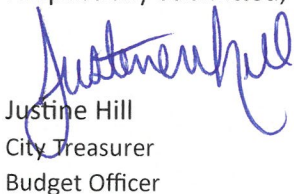 Justine Hill
Justine Hill
City Treasurer
Budget Officer